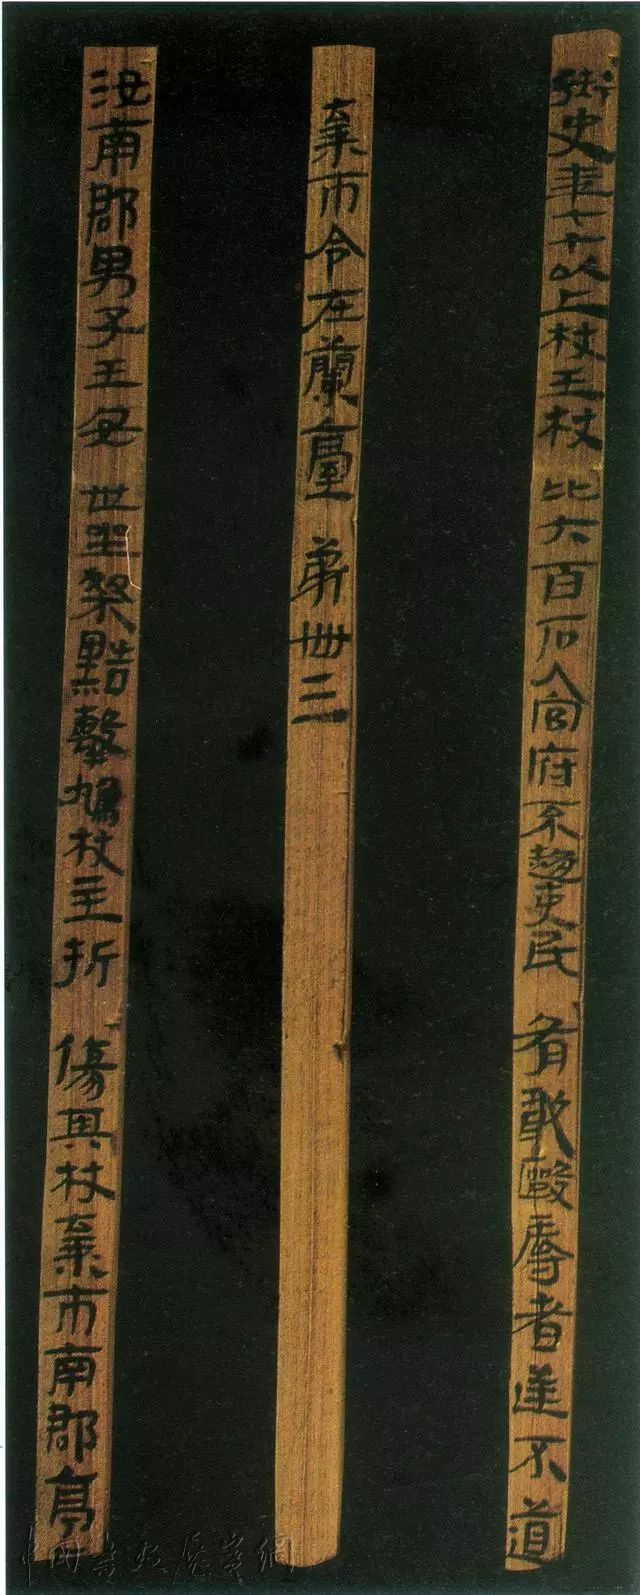 御史年七十以上杖王杖比六百石入官府不趨吏民有敢毆辱者逆不道
棄市令在蘭臺第卌三
汝南郡男子王安世坐桀黠擊鳩杖主折傷其杖棄市南郡亭